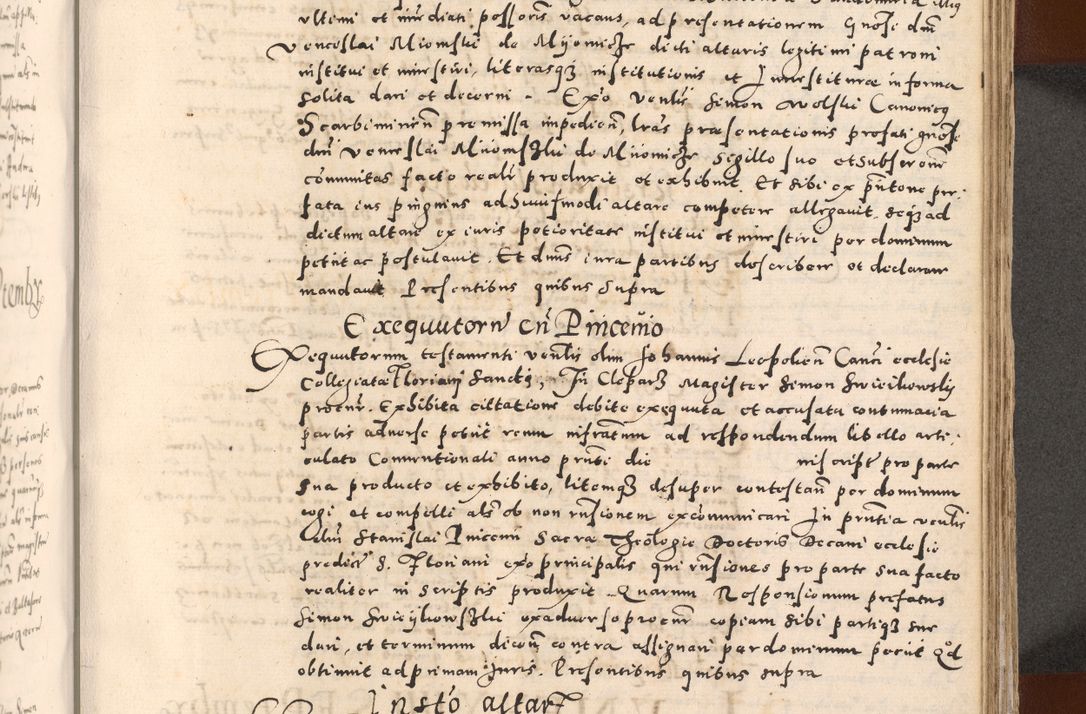 vltimi et immediati possessoris vacans, ad presentationem Gnosi dni
Venceslai Miomski de Mijomicze dicti altaris legitimi patroni
institui et inuestiri, literasqз institutionis et Inuestiturae in forma
solita dari et decerni. Exo venlis Simon Wolski Canonicq
Scarbimirien premissa impedien, lras praesentationis prefati gnosi
dni Venceslai Miiomszki de Miiomicze sigillo suo et subscrone
communitas facto reali produxit et exhibuit. Et sibi ex pntone pre-
fata ius pinguius ad huiusmodi altare competere allegauit. seqз ad
dictum altare ex iuris potioritate institui et inuestiri per dominum
petiit ac postulauit. Et dnus iura partibus describere et declarare
mandauit Presentibus quibus supra
Exequutorum cū Pincenio
Exequutorum testamenti venlis olim Johannis Leopolien Canci ecclesie
Collegiatae Floriani Sancti, In Clepars Magister Simon Swieijkowskij
procur. Exhibita cittatione debite exequuta et accusata contumacia
partis aduerse petiit reum infratum ad respondendum libello arti-
culato Conuentionali anno prnti die in scriptis pro parte
sua producto et exhibito, litemqз desuper contestari per dominum
cogi et compelli als ob non rnsionem excomunicari In prntia venlis
dni Stanislai Pincenii Sacrae Theologie Doctoris Decani ecclesie
predicte S. Floriani exo principalis qui rnsiones pro parte sua facto
realiter in scriptis produxit. Quarum Responsionum prefatus
Simon Swieijkowszki ex aduerso procur copiam sibi partiqз sue
dari, et terminum dicen contra assignari per dominum petiit Qd
obtinuit ad primam Juris. Presentibus quibus supra
Insto altaris